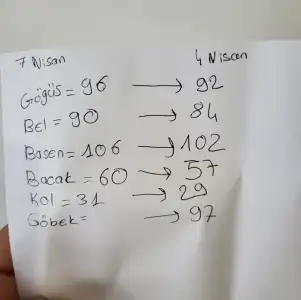 7 Nisan 4 Niscan
Göğüs = 96 → 92
Bel = 90 → 84
Basen = 106 → 102
Bacak = 60 → 57
Kol = 31 → 29
Göbek = → 97